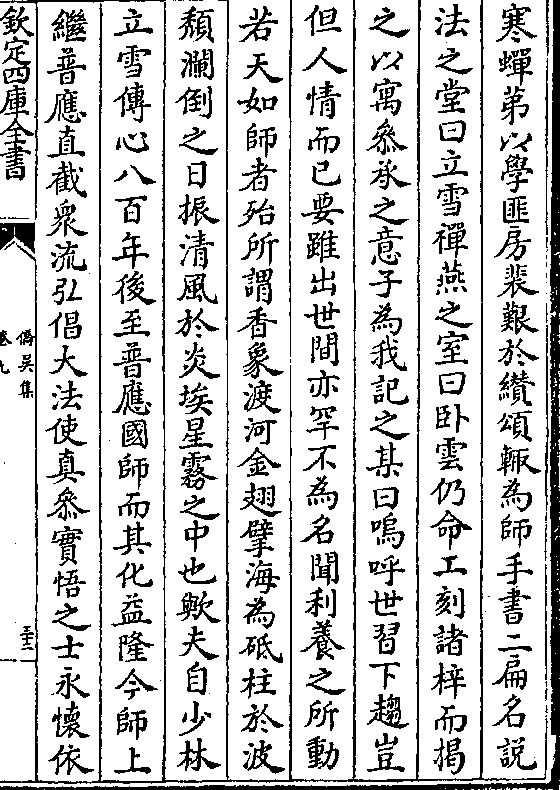 寒蟬苐以學匪房裴艱於纉頌輙為師手書二扁名説
法之堂曰立雪禪燕之室曰卧雲仍命工刻諸梓而揭
之以寓叅承之意子為我記之某曰嗚呼世習下趨豈
但人情而已要雖出世間亦罕不為名聞利養之所動
若天如師者殆所謂香象渡河金翅擘海為砥柱於波
頽瀾倒之日振清風於炎埃星霧之中也歟夫自少林
立雪傳心八百年後至普應國師而其化益隆今師上
繼普應直截衆流弘倡大法使真叅實悟之士永懷依
欽定四庫全書
僑吳集
卷九